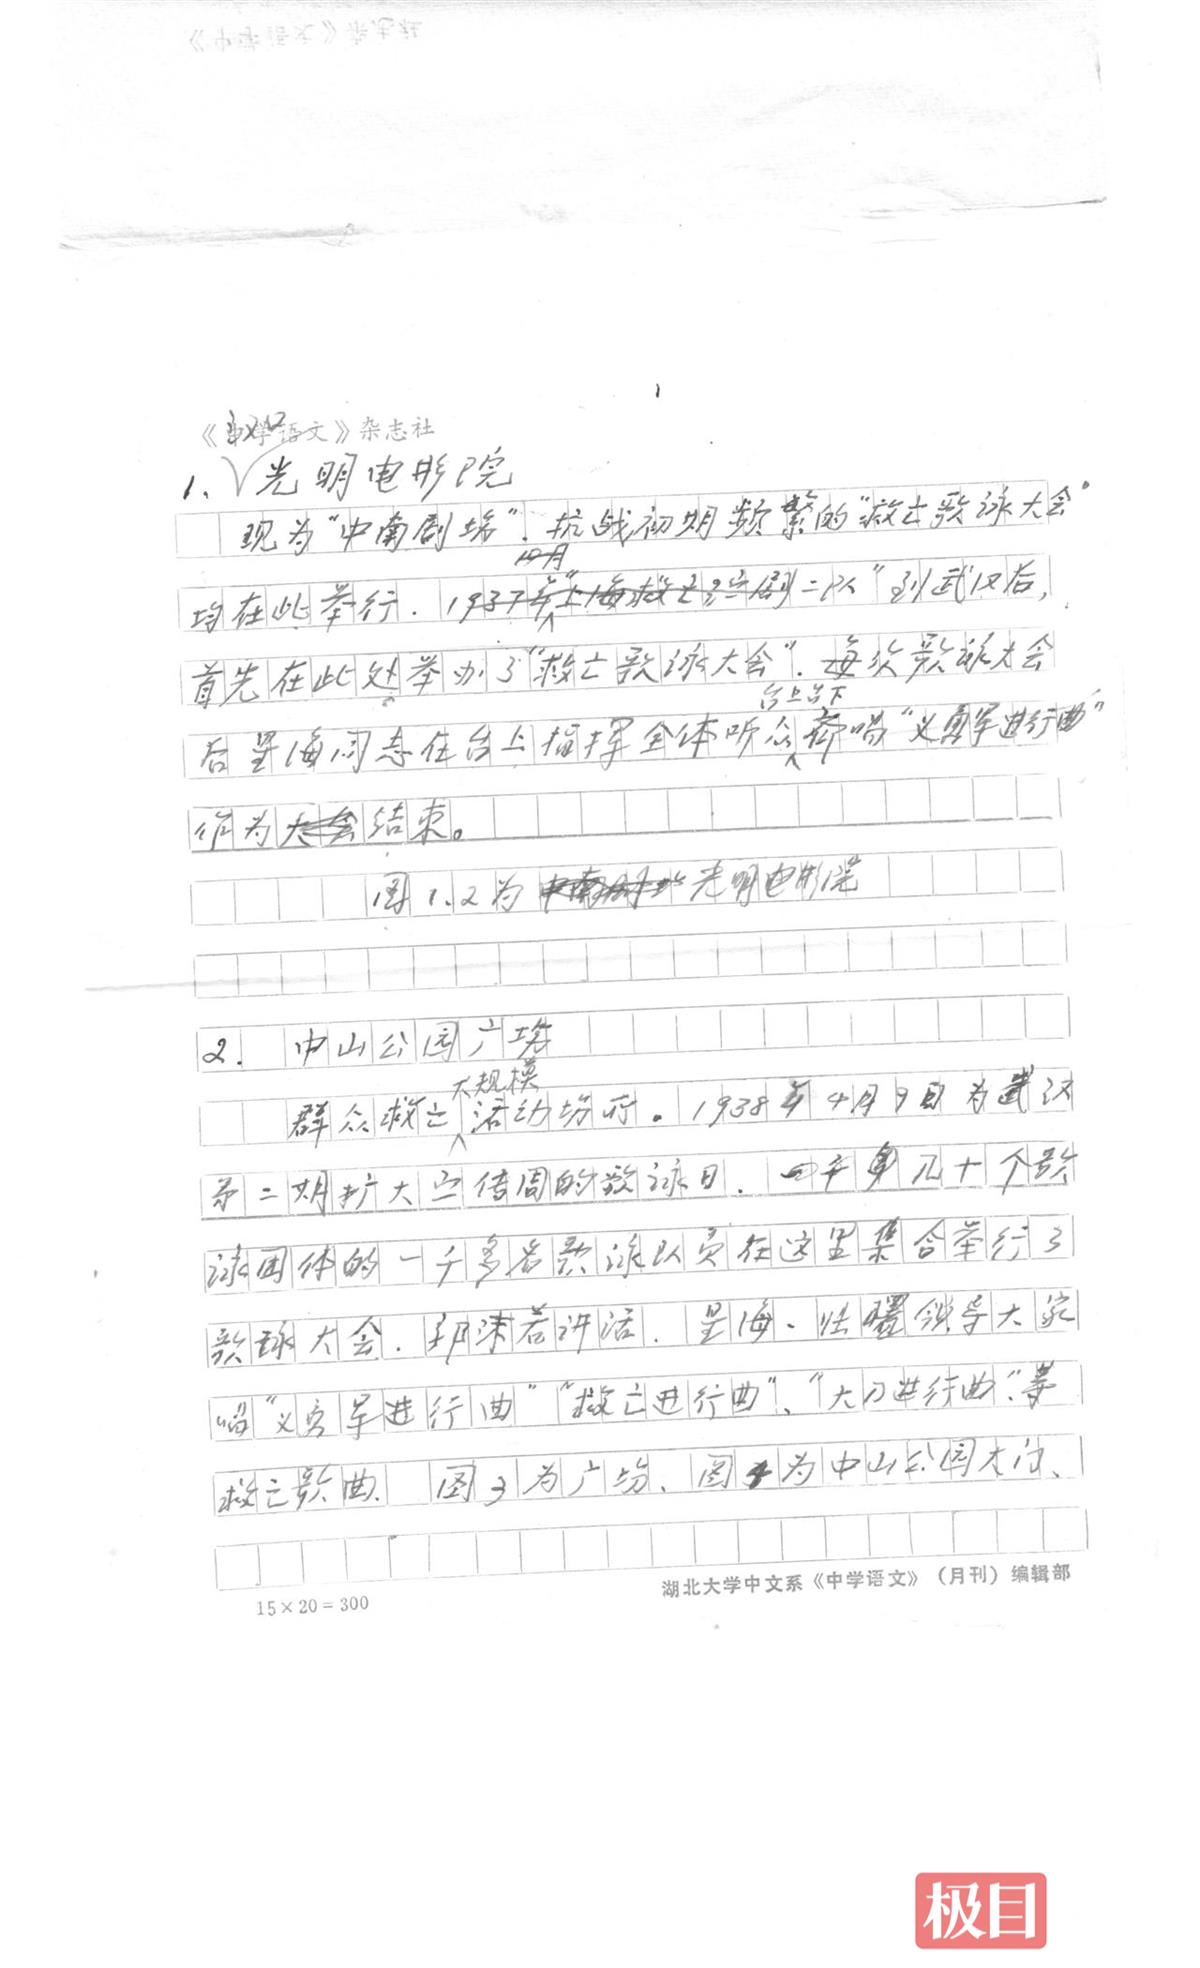 《中学语文》杂志社
1
《中学语文》杂志社
1. √光明电影院
现为“中南剧场”. 抗战初期频繁的“救亡歌泳大会”
均在此举行. 1937年10月“上海救亡演剧二队”到武汉后,
首先在此处举办了“救亡歌泳大会”. 每次歌泳大会
后星海同志在台上指挥全体听众台上台下齐唱“义勇军进行曲”
作为大会结束。
图1.2为 光明电影院
2. 中山公园广场
群众救亡大规模活动场所. 1938年4月9日为武汉
第二期扩大宣传周的歌泳日. 几十个歌
泳团体的一千多名歌泳队员在这里集合举行了
歌泳大会. 郭沫若讲话. 星海、张曙领导大家
唱“义勇军进行曲”“救亡进行曲”、“大刀进行曲”.等
救亡歌曲. 图3为广场、图4为中山公园大门、
15×20=300
湖北大学中文系《中学语文》(月刊)编辑部
极目